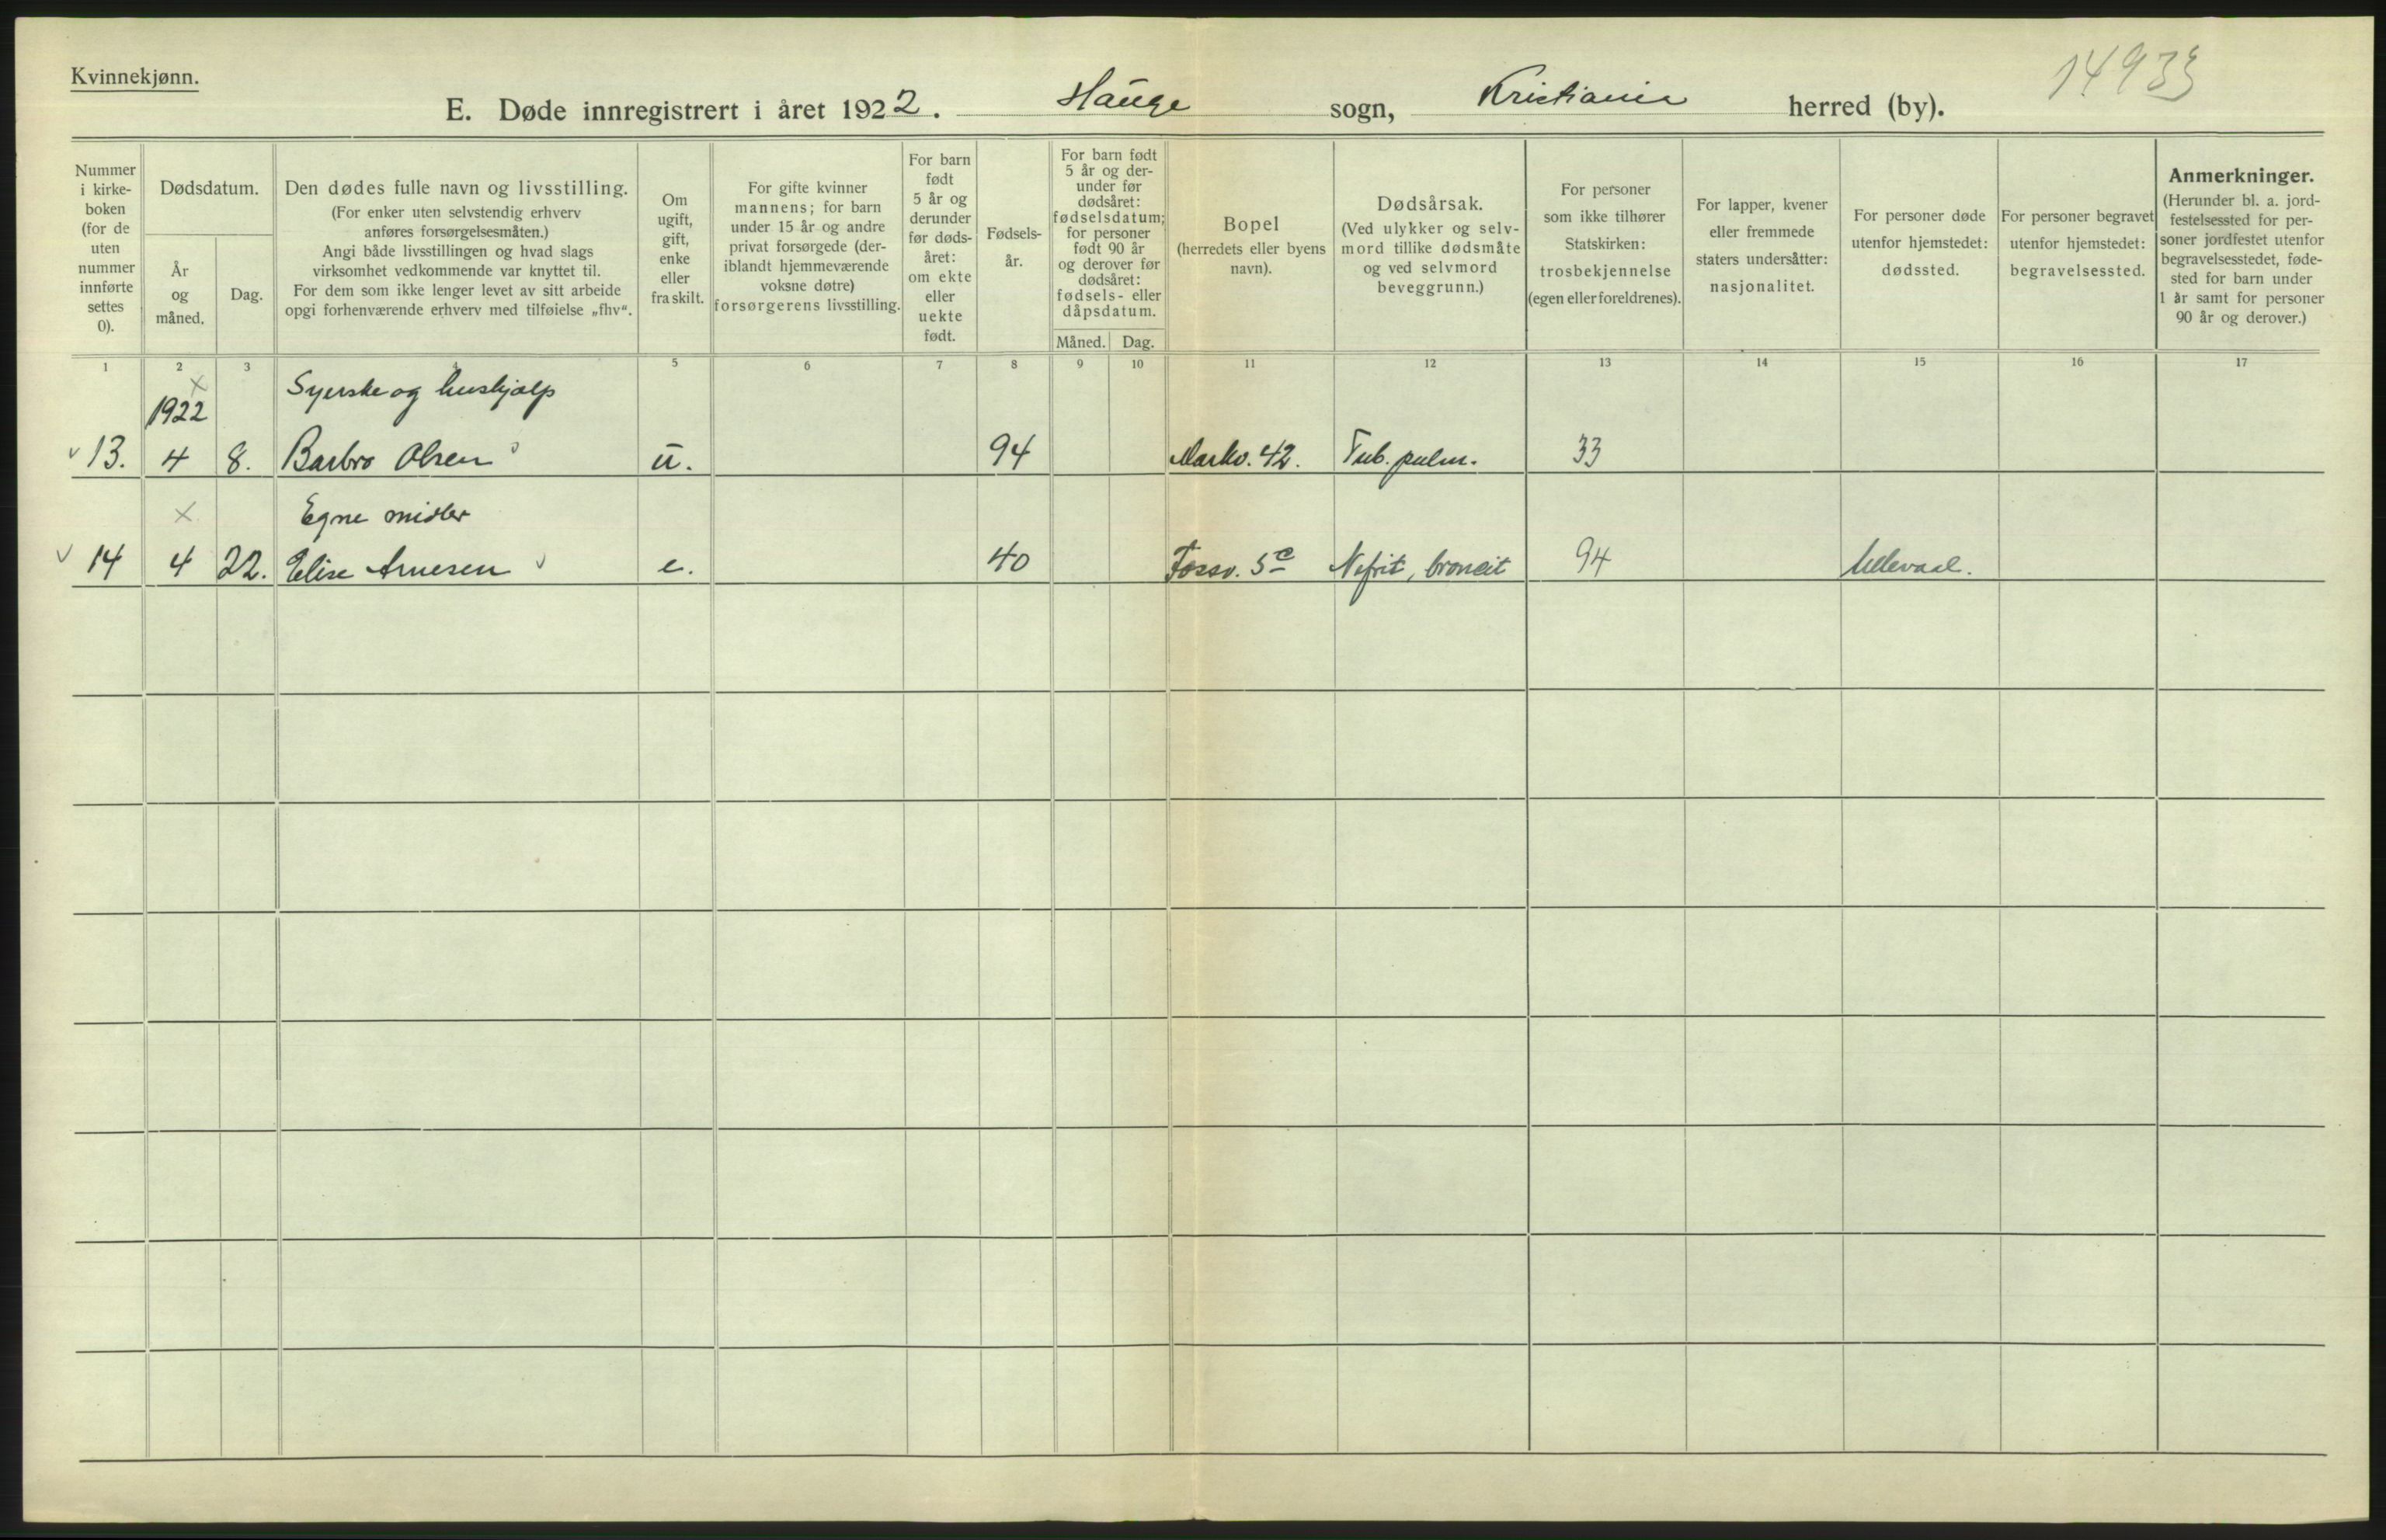 Kvinnekjønn.
14933
E. Døde innregistrert i året 1922. Hauge sogn, Kristiania herred (by).
Nummer
i kirke-
boken
(for de
uten
nummer
innførte
settes
0).
Dødsdatum.
År
og
måned.
Dag.
Den dødes fulle navn og livsstilling.
(For enker uten selvstendig erhverv
anføres forsørgelsesmåten.)
Angi både livsstillingen og hvad slags
virksomhet vedkommende var knyttet til.
For dem som ikke lenger levet av sitt arbeide
opgi forhenværende erhverv med tilføielse „fhv“.
Om
ugift,
gift,
enke
eller
fraskilt.
For gifte kvinner
mannens; for barn
under 15 år og andre
privat forsørgede (der-
iblandt hjemmeværende
voksne døtre)
forsørgerens livsstilling.
For barn
født
5 år og
derunder
før døds-
året:
om ekte
eller
uekte
født.
Fødsels-
år.
For barn født
5 år og der-
under før
dødsåret:
fødselsdatum;
for personer
født 90 år
og derover før
dødsåret:
fødsels- eller
dåpsdatum.
Måned. Dag.
Bopel
(herredets eller byens
navn).
Dødsårsak.
(Ved ulykker og selv-
mord tillike dødsmåte
og ved selvmord
beveggrunn.)
For personer
som ikke tilhører
Statskirken:
trosbekjennelse
(egen eller foreldrenes).
For lapper, kvener
eller fremmede
staters undersåtter:
nasjonalitet.
For personer døde
utenfor hjemstedet:
dødssted.
For personer begravet
utenfor hjemstedet:
begravelsessted.
Anmerkninger.
(Herunder bl. a. jord-
festelsessted for per-
soner jordfestet utenfor
begravelsesstedet, føde-
sted for barn under
1 år samt for personer
90 år og derover.)
1 2 3 4 5 6 7 8 9 10 11 12 13 14 15 16 17
× Syerske og hushjælp
1922
13. 4 8. Barbro Olsen u. 94 Markv. 42. Tub. pulm. 33
× Egne midler
14 4 22. Elise Arnesen e. 40 Fossv. 5c Nefrit, broncit 94 Ullevaal.